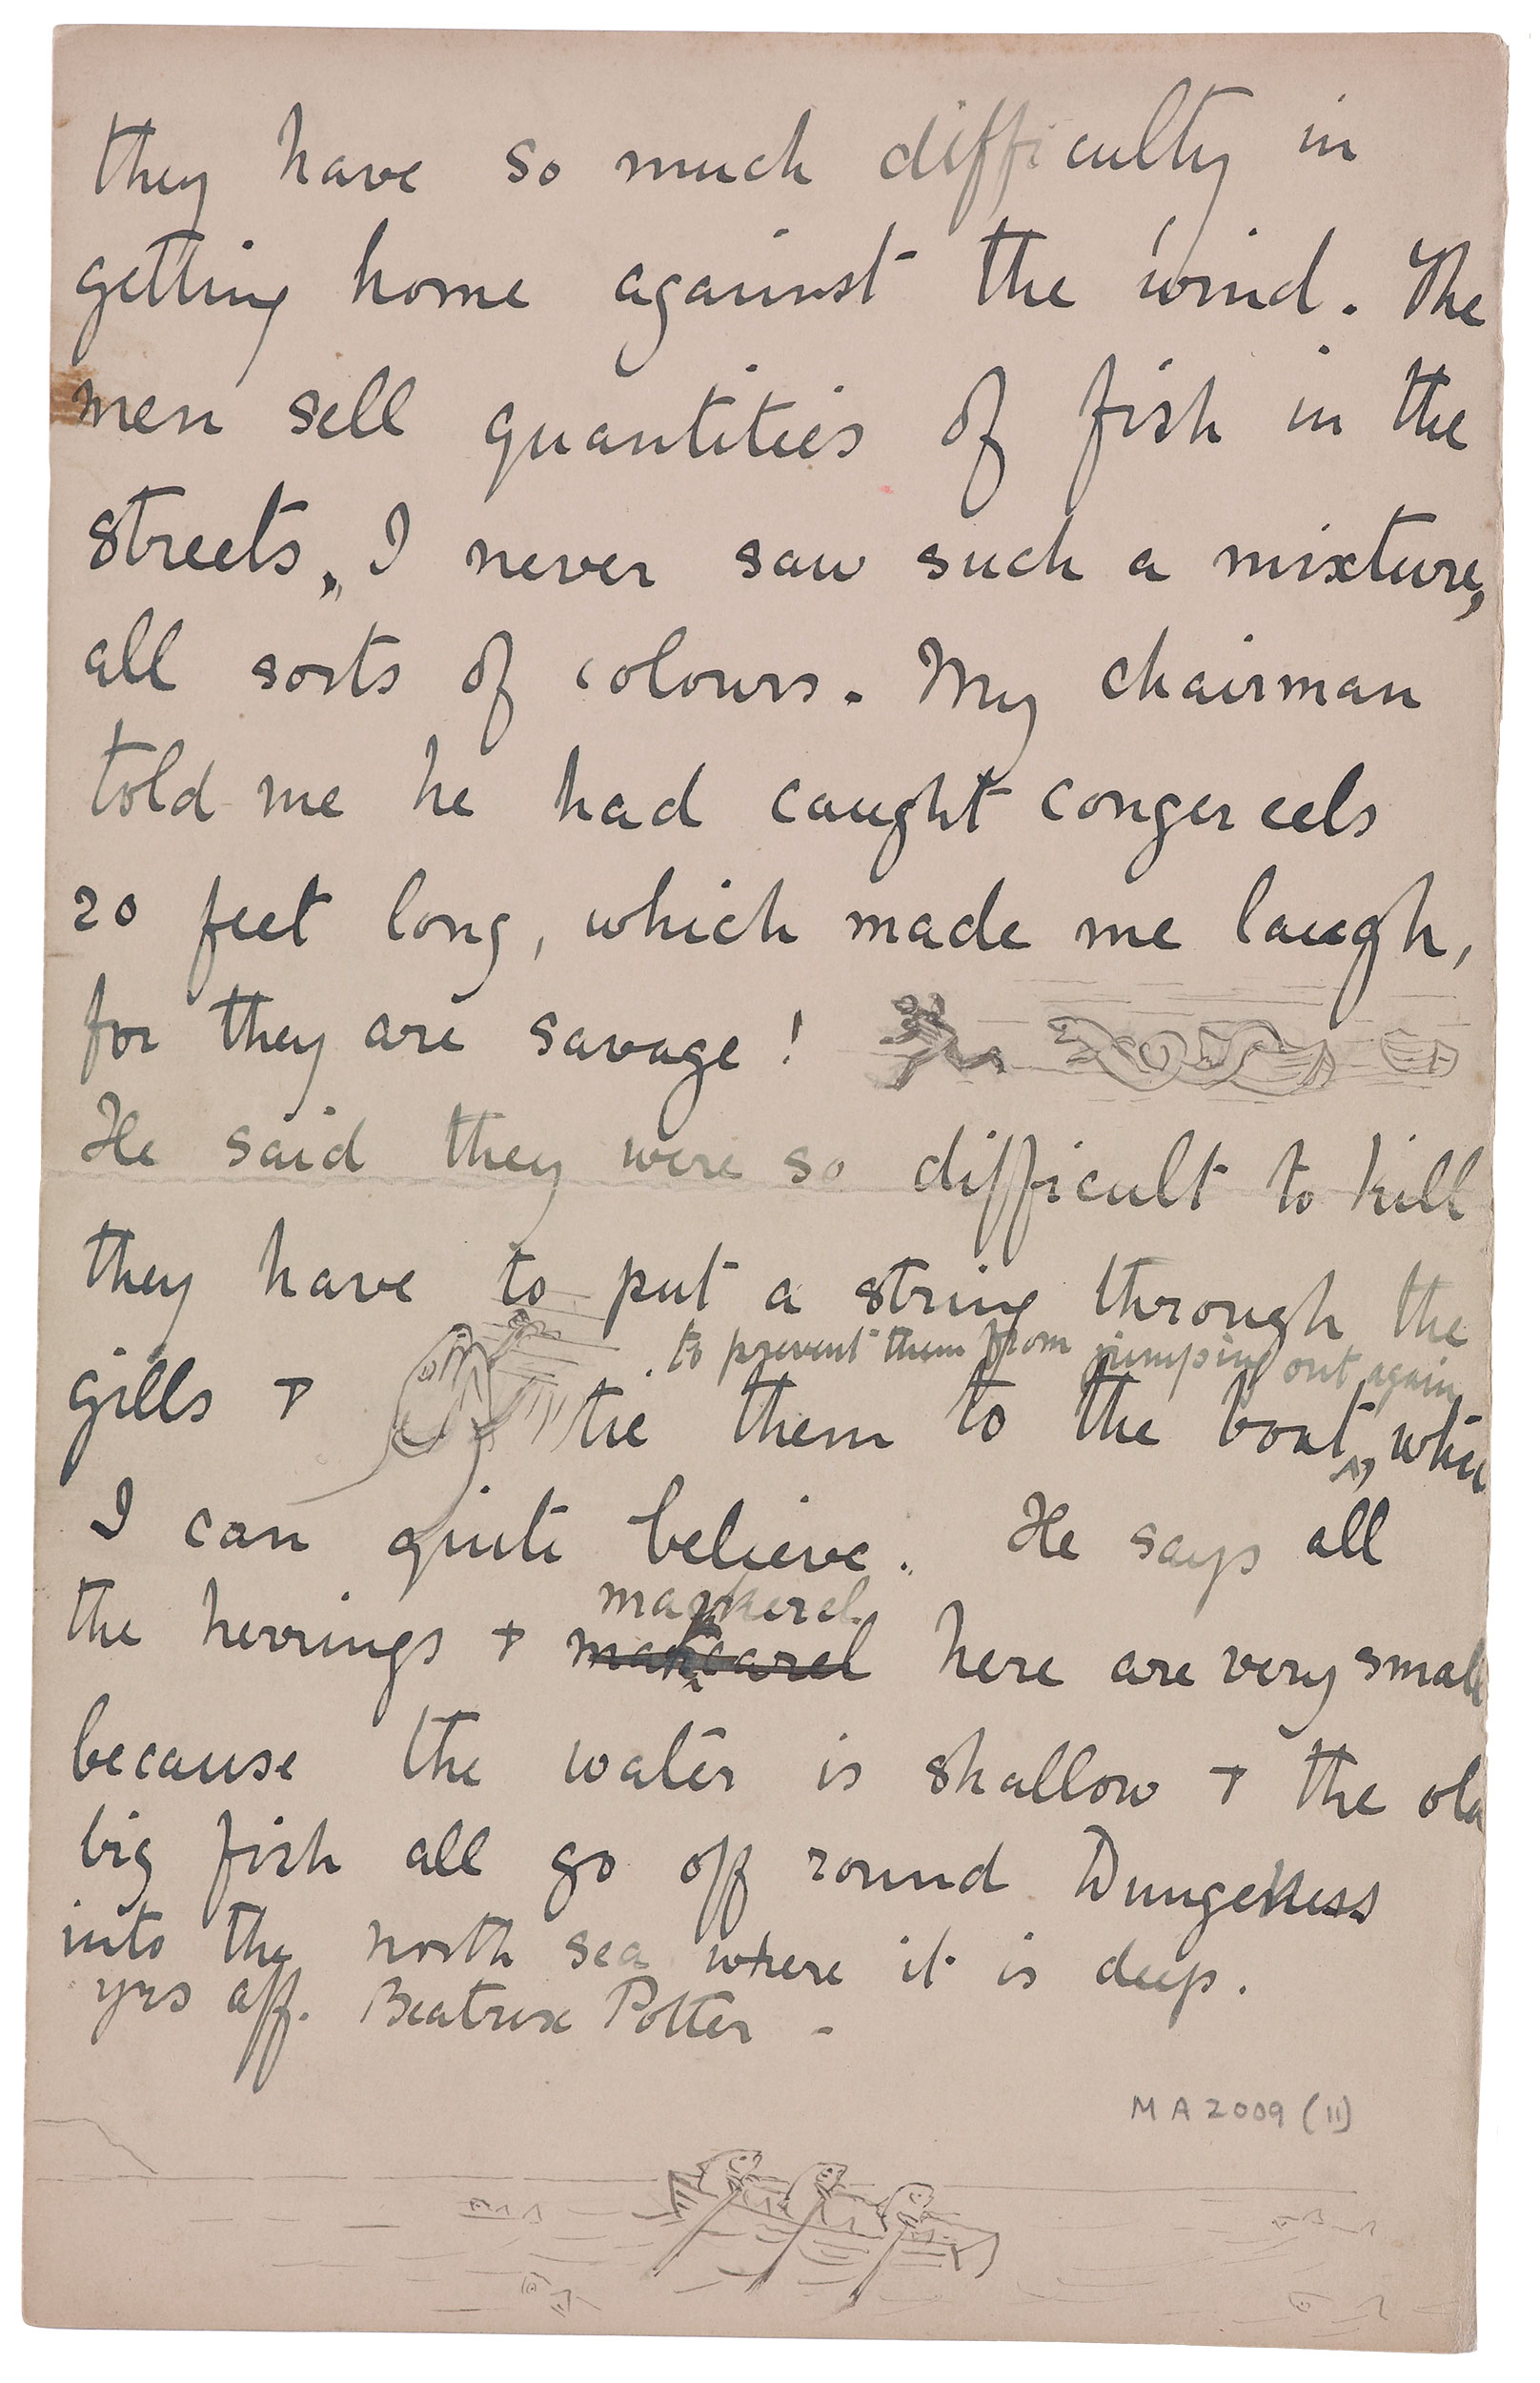 they have so much difficulty in
getting home against the wind. The
men sell quantities of fish in the
streets, I never saw such a mixture,
all sorts of colours. My chairman
told me he had caught conger eels
20 feet long, which made me laugh,
for they are savage!
He said they were so difficult to kill
they have to put a string through the
to prevent them from jumping out again
gills + tie them to the boat, whic
I can quite believe. He says all
mackerel
the herrings + here are very small
because the water is shallow + the old
big fish all go off round Dungeness
into the north sea where it is deep.
yrs aff. Beatrix Potter -
MA 2009 (11)